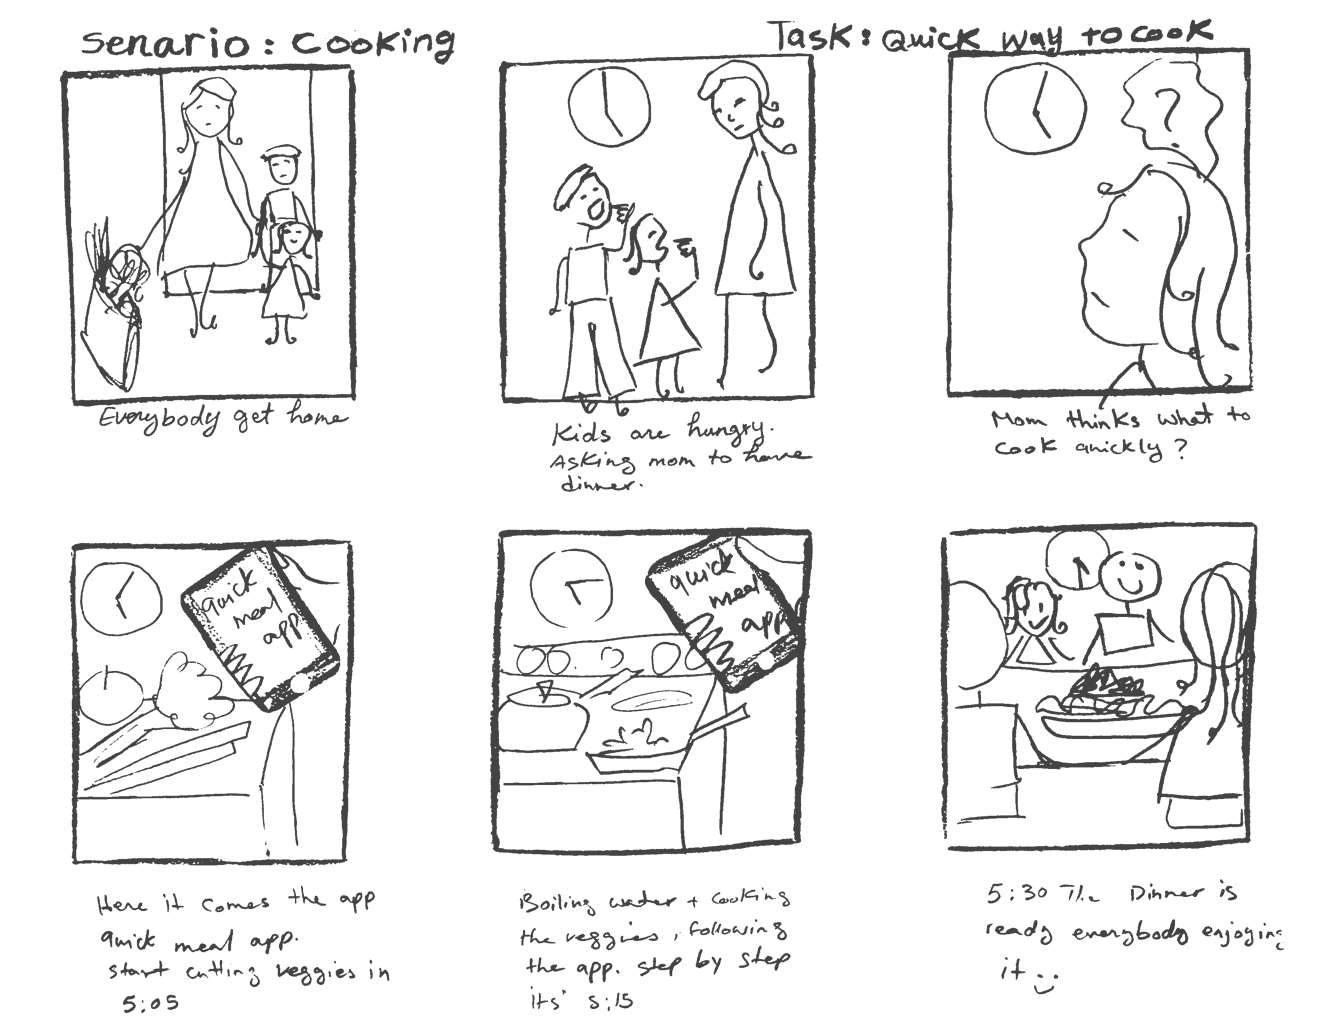 Senario: Cooking
Task: Quick way to cook
?
Everybody get home
Kids are hungry.
Asking mom to have
dinner.
Mom thinks what to
cook quickly?
quick
meal
app
quick
meal
app
Here it comes the app
quick meal app.
start cutting veggies in
5:05
Boiling water + cooking
the veggies, following
the app. step by step
its' 5:15
5:30 The Dinner is
ready everybody enjoying
it